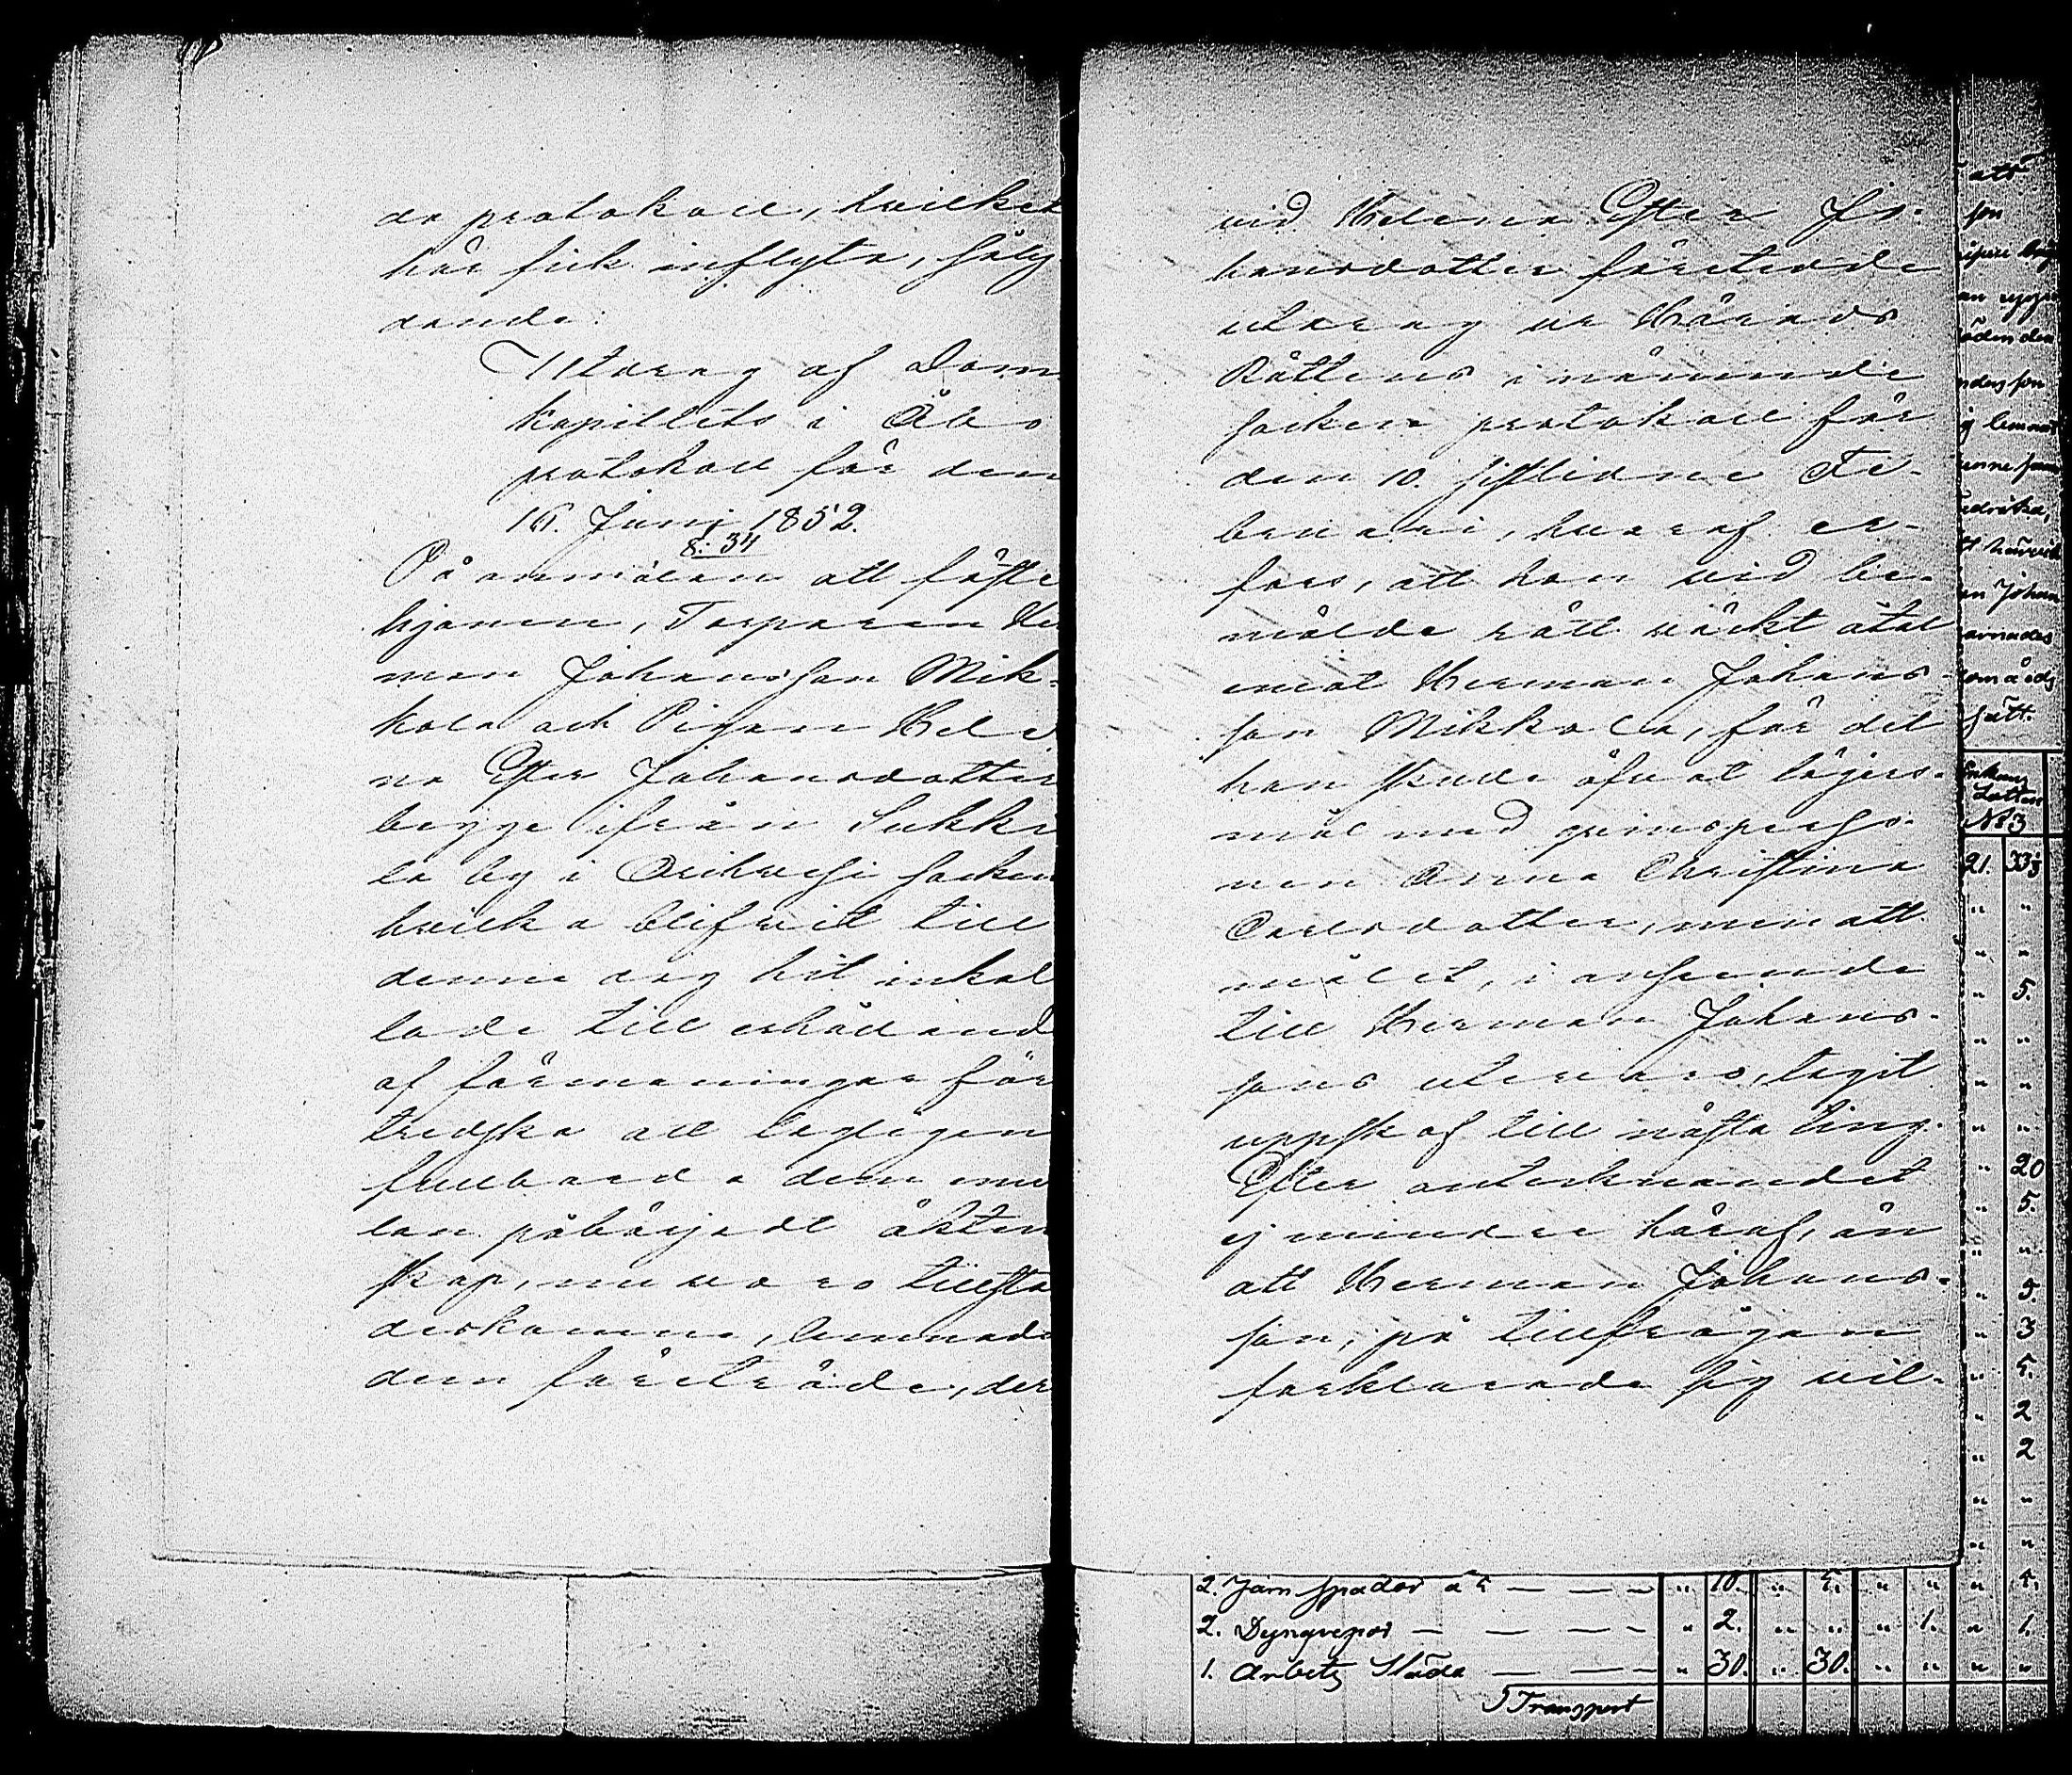 de protokoll, hvilket
här fick inflyta, följ
ande:
Utdrag af Dom
kapitlets i Åbo
protokoll för den
16. Junj 1852.
8: 34
På anmälan att fäste
hjonen, Torparen Her
man Johansson Mik-
kola och Pigan Hele
na Ester Johansdotter
begge ifrån Sukki
la by i Orihvesi socken
hvilka blifvit till
denne dag hit inkal
lade till erhålland
af förmaningar för
tredska att lagligen
fullborda dem emel
lan påbörjadt äkten
skap, nu voro tillsta
deskomne, lemnades
dem företräde, der
vid Helena Ester Jo-
hansdotter företedde
utdrag ur Härads
Rättens i närmnde
socken protokoll för
den 10. sistlidne Fe-
bruari, hvaraf er-
fors, att hon vid be-
mälde rätt väckt åtal
emot Herman Johans-
son Mikkola, för det
han skude öfvat lägers-
mål med qvinsperso-
nen Anna Christina
Carlsdotter, men att
målet, i anseende
till Herman Johans-
sons utevaro, tagit
uppskof till nästa ting.
Efter antecknandet
ej mindre häraf, än
att Herman Johans-
son, på tillfrågan
förklarade sig vil-
att
son
öden den
ndersson
an Johan
som å ids
satt.
Enkans
Lotten
No 3
21. 33 1/3
" "
" "
" 5.
" "
" "
" "
" 20
" 5.
" "
" 5.
" 3
" 5.
" 2
" 2
" "
" "
2. Järn spador à 5 — — — " 10. " 5. " " " 5.
2. Dyngrepor — — — " 2. " " " 1. " 1.
1. Arbets Släda — — — " 30. " 30. " " " "
Transport